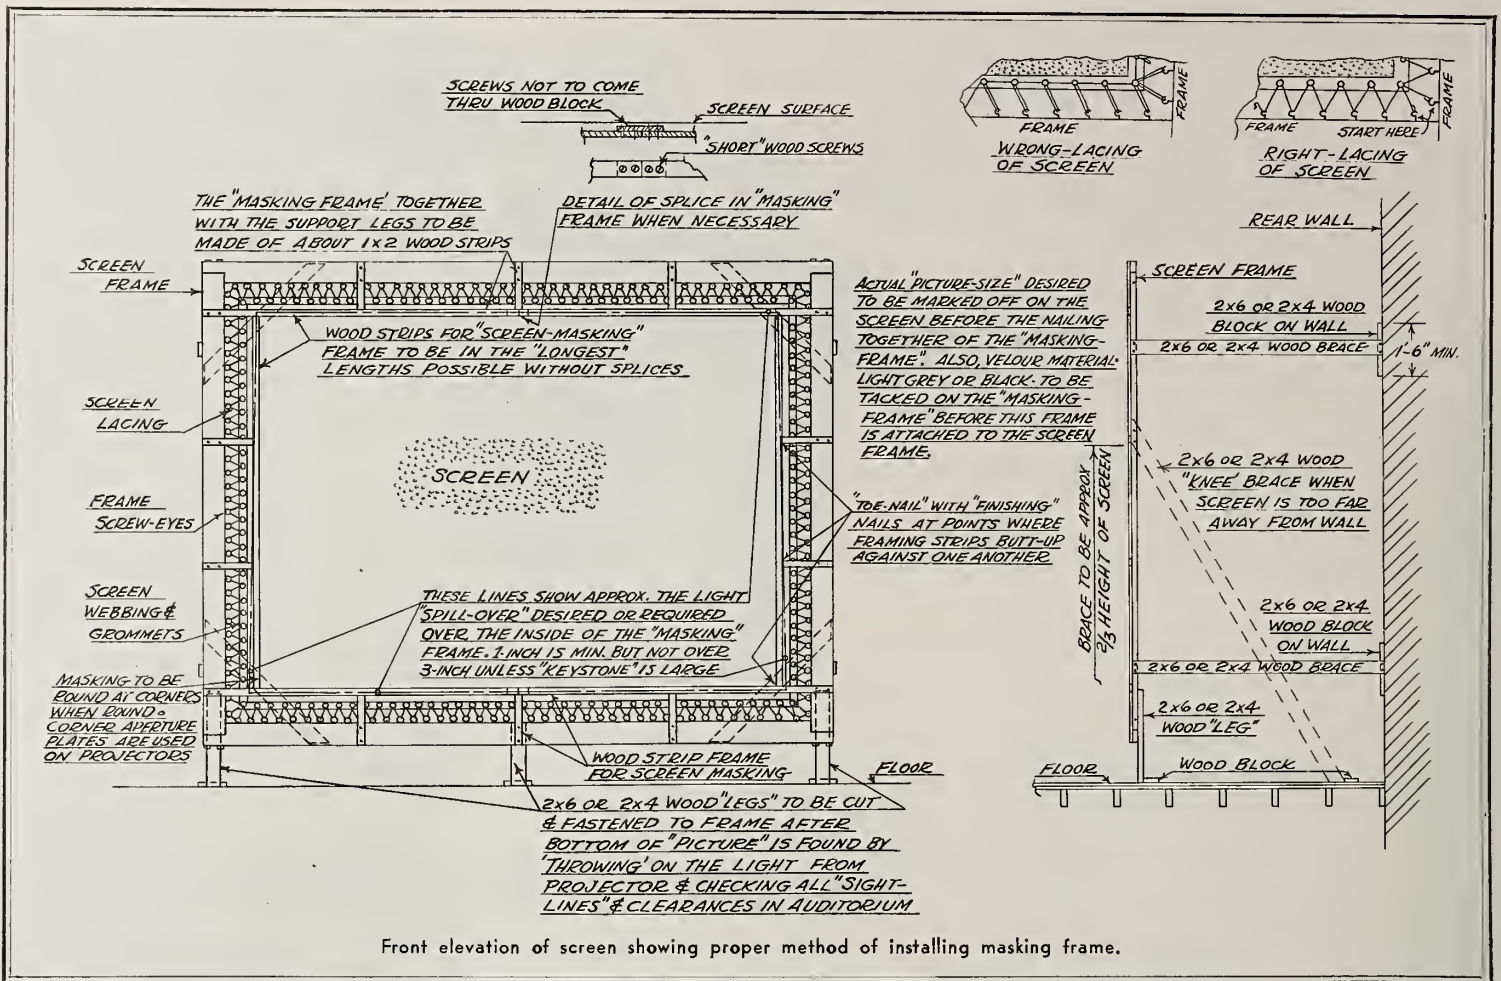 SCREWS NOT TO COME
THRU WOOD BLOCK
SCREEN SURFACE
"SHORT" WOOD SCREWS
FRAME
FRAME
WRONG-LACING
OF SCREEN
FRAME
START HERE
FRAME
RIGHT-LACING
OF SCREEN
THE "MASKING FRAME' TOGETHER
WITH THE SUPPORT LEGS TO BE
MADE OF ABOUT 1x2 WOOD STRIPS
DETAIL OF SPLICE IN "MASKING"
FRAME WHEN NECESSARY
SCREEN
FRAME
WOOD STRIPS FOR "SCREEN-MASKING"
FRAME TO BE IN THE "LONGEST"
LENGTHS POSSIBLE WITHOUT SPLICES
SCREEN
LACING
SCREEN
FRAME
SCREW-EYES
SCREEN
WEBBING &
GROMMETS
MASKING TO BE
ROUND AT CORNERS
WHEN ROUND-
CORNER APERTURE
PLATES ARE USED
ON PROJECTORS
THESE LINES SHOW APPROX. THE LIGHT
"SPILL-OVER" DESIRED OR REQUIRED
OVER THE INSIDE OF THE "MASKING"
FRAME. 1-INCH IS MIN. BUT NOT OVER
3-INCH UNLESS "KEYSTONE" IS LARGE
WOOD STRIP FRAME
FOR SCREEN MASKING
FLOOR
2x6 OR 2x4 WOOD "LEGS" TO BE CUT
& FASTENED TO FRAME AFTER
BOTTOM OF "PICTURE" IS FOUND BY
'THROWING' ON THE LIGHT FROM
PROJECTOR & CHECKING ALL "SIGHT-
LINES" & CLEARANCES IN AUDITORIUM
ACTUAL "PICTURE-SIZE" DESIRED
TO BE MARKED OFF ON THE
SCREEN BEFORE THE NAILING
TOGETHER OF THE "MASKING-
FRAME". ALSO, VELOUR MATERIAL-
LIGHT GREY OR BLACK-TO BE
TACKED ON THE "MASKING-
FRAME" BEFORE THIS FRAME
IS ATTACHED TO THE SCREEN
FRAME.
"TOE-NAIL" WITH "FINISHING"
NAILS AT POINTS WHERE
FRAMING STRIPS BUTT-UP
AGAINST ONE ANOTHER
REAR WALL
SCREEN FRAME
2x6 OR 2x4 WOOD
BLOCK ON WALL
2x6 OR 2x4 WOOD BRACE
1'-6" MIN.
2x6 OR 2x4 WOOD
"KNEE' BRACE WHEN
SCREEN IS TOO FAR
AWAY FROM WALL
BRACE TO BE APPROX
2/3 HEIGHT OF SCREEN
2x6 OR 2x4
WOOD BLOCK
ON WALL
2x6 OR 2x4 WOOD BRACE
2x6 OR 2x4
WOOD "LEG"
FLOOR
WOOD BLOCK
Front elevation of screen showing proper method of installing masking frame.